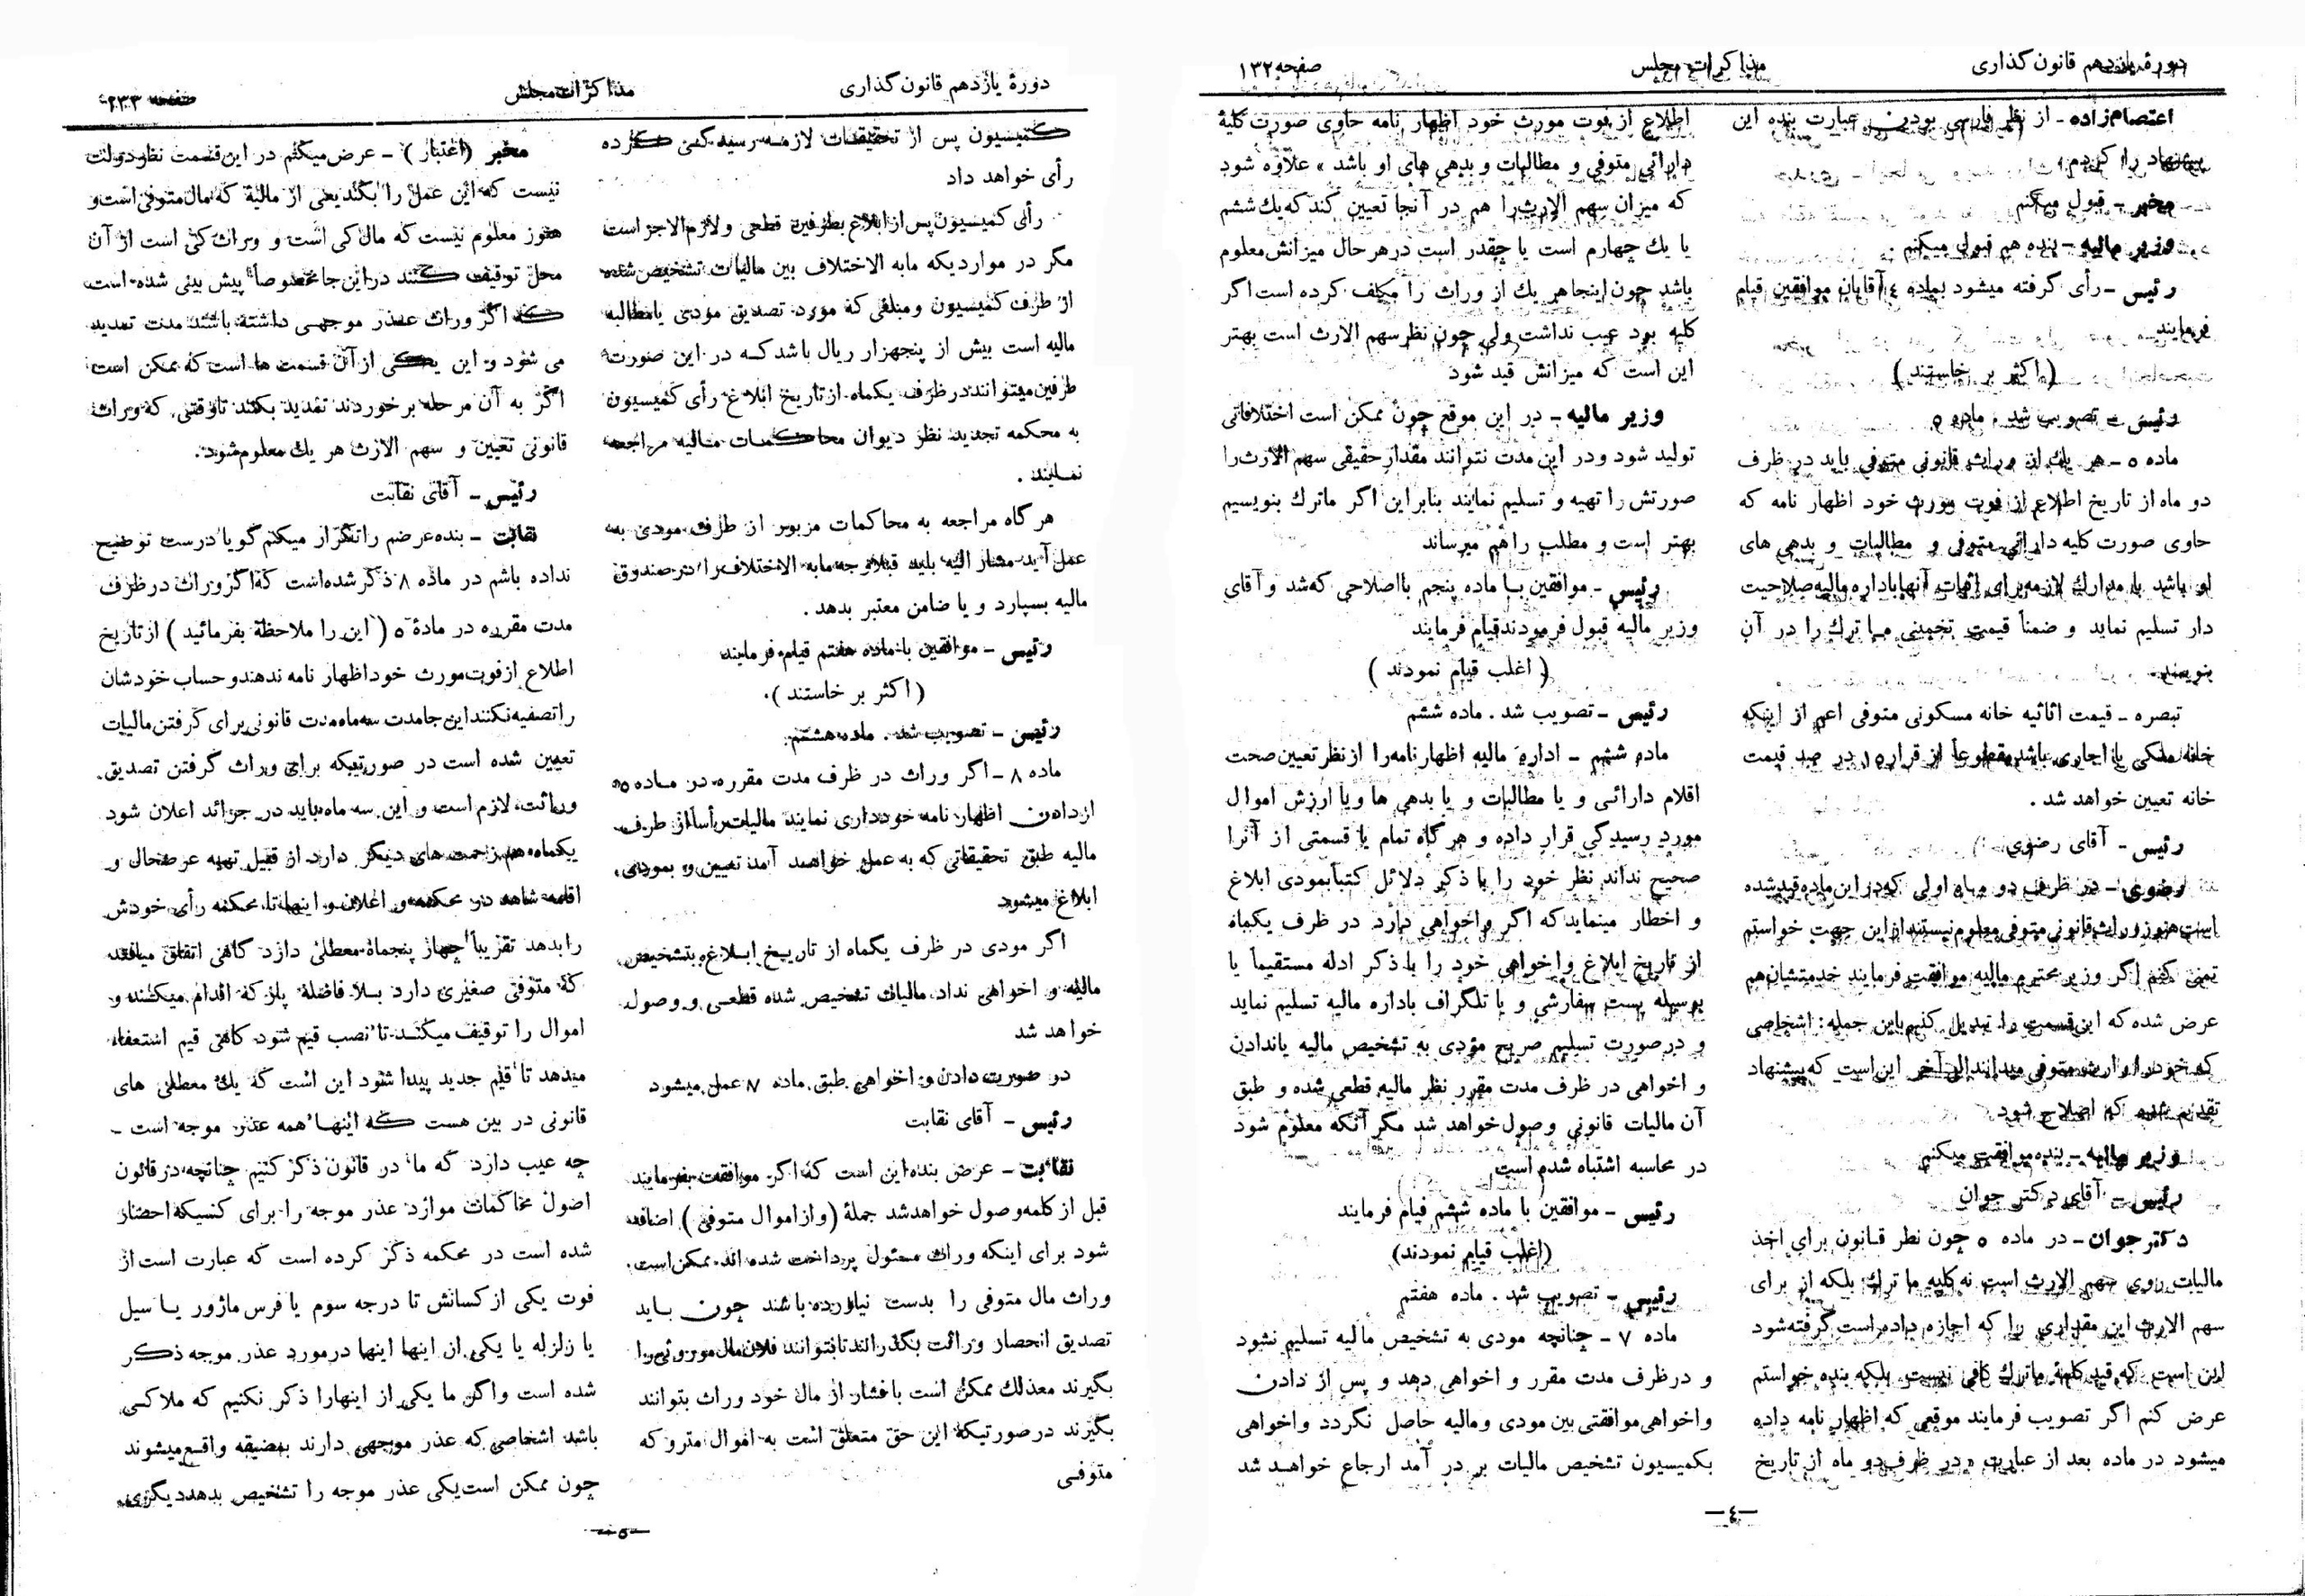 دورهٔ یازدهم قانون‌گذاری
مذاکرات مجلس
صفحه ۱۳۲
اعتصام‌زاده ـ از نظر فارسی بودن عبارت بنده این
پیشنهاد را کردم
مخبر ـ قبول میکنم
وزیر مالیه ـ بنده هم قبول میکنم .
رئیس ـ رأی گرفته میشود بماده ٤ آقایان موافقین قیام
فرمایند
( اکثر بر خاستند )
رئیس ـ تصویب شد . ماده ٥
ماده ٥ ـ هر یك از وراث قانونی متوفی باید در ظرف
دو ماه از تاریخ اطلاع از فوت مورث خود اظهار نامه که
حاوی صورت کلیه دارائی متوفی و مطالبات و بدهی های
او باشد با مدارك لازمه برای اثبات آنها باداره مالیه صلاحیت
دار تسلیم نماید و ضمناً قیمت تخمینی ما ترك را در آن
بنویسند
تبصره ـ قیمت اثاثیه خانه مسکونی متوفی اعم از اینکه
خانه ملکی یا اجاری باشد مقطوعاً از قرار ۱۵ در صد قیمت
خانه تعیین خواهد شد .
رئیس ـ آقای رضوی
رضوی ـ در ظرف دو ماه اولی که در این ماده قید شده
است هنوز وراث قانونی متوفی معلوم نیستند از این جهت خواستم
تمنی کنم اگر وزیر محترم مالیه موافقت فرمایند خدمتشان هم
عرض شده که این قسمت را تبدیل کنیم باین جمله : اشخاصی
که خود را وارث متوفی میدانند الی آخر این است که پیشنهاد
تقدیم شده که اصلاح شود
وزیر مالیه ـ بنده موافقت میکنم
رئیس ـ آقای دکتر جوان
دکتر جوان ـ در ماده ٥ چون نظر قانون برای اخذ
مالیات روی سهم الارث است نه کلیه ما ترك بلکه از برای
سهم الارث این مقداری را که اجازه داده است گرفته شود
این است که قید کلمهٔ ماترك کافی نیست بلکه بنده خواستم
عرض کنم اگر تصویب فرمایند موقعی که اظهار نامه داده
میشود در ماده بعد از عبارت « در ظرف دو ماه از تاریخ
اطلاع از فوت مورث خود اظهار نامه حاوی صورت کلیهٔ
دارائی متوفی و مطالبات و بدهی های او باشد » علاوه شود
که میزان سهم الارث را هم در آنجا تعیین کند که یك ششم
یا یك چهارم است یا چقدر است در هر حال میزانش معلوم
باشد چون اینجا هر یك از وراث را مکلف کرده است اگر
کلیه بود عیب نداشت ولی چون نظر سهم الارث است بهتر
این است که میزانش قید شود
وزیر مالیه ـ در این موقع چون ممکن است اختلافاتی
تولید شود و در این مدت نتوانند مقدار حقیقی سهم الارث را
صورتش را تهیه و تسلیم نمایند بنابراین اگر ماترك بنویسیم
بهتر است و مطلب را هم میرساند
رئیس ـ موافقین با ماده پنجم بااصلاحی که شد و آقای
وزیر مالیه قبول فرمودند قیام فرمایند
( اغلب قیام نمودند )
رئیس ـ تصویب شد . ماده ششم
ماده ششم ـ اداره مالیه اظهار نامه را از نظر تعیین صحت
اقلام دارائی و یا مطالبات و یا بدهی ها و یا ارزش اموال
مورد رسیدگی قرار داده و هر گاه تمام یا قسمتی از آنرا
صحیح نداند نظر خود را با ذکر دلائل کتباً بمؤدی ابلاغ
و اخطار مینماید که اگر واخواهی دارد در ظرف یکماه
از تاریخ ابلاغ واخواهی خود را با ذکر ادله مستقیماً یا
بوسیله پست سفارشی و یا تلگراف باداره مالیه تسلیم نماید
و در صورت تسلیم صریح مؤدی به تشخیص مالیه یا ندادن
و اخواهی در ظرف مدت مقرر نظر مالیه قطعی شده و طبق
آن مالیات قانونی وصول خواهد شد مگر آنکه معلوم شود
در محاسبه اشتباه شده است
رئیس ـ موافقین با ماده ششم قیام فرمایند
(اغلب قیام نمودند)
رئیس ـ تصویب شد . ماده هفتم
ماده ۷ ـ چنانچه مودی به تشخیص مالیه تسلیم نشود
و در ظرف مدت مقرر و اخواهی دهد و پس از دادن
واخواهی موافقتی بین مودی و مالیه حاصل نگردد واخواهی
بکمیسیون تشخیص مالیات بر در آمد ارجاع خواهد شد
ـ٤ـ
دورهٔ یازدهم قانون گذاری
مذاکرات مجلس
صفحه ۱۳۳
کمیسیون پس از تحقیقات لازمه رسیدگی کرده
رأی خواهد داد
رأی کمیسیون پس از ابلاغ بطرفین قطعی و لازم الاجرا است
مگر در مواردیکه مابه الاختلاف بین مالیات تشخیص شده
از طرف کمیسیون و مبلغی که مورد تصدیق مؤدی یا مطالبه
مالیه است بیش از پنجهزار ریال باشد که در این صورت
طرفین میتوانند در ظرف یکماه از تاریخ ابلاغ رأی کمیسیون
به محکمه تجدید نظر دیوان محاکمات مالیه مراجعه
نمایند .
هر گاه مراجعه به محاکمات مزبور از طرف مودی به
عمل آید مشار الیه باید قبلا وجه مابه الاختلاف را در صندوق
مالیه بسپارد و یا ضامن معتبر بدهد .
رئیس ـ موافقین با ماده هفتم قیام فرمایند
( اکثر بر خاستند ) .
رئیس ـ تصویب شد . ماده هشتم
ماده ۸ ـ اگر وراث در ظرف مدت مقرره در ماده ٥
از دادن اظهار نامه خودداری نمایند مالیات رأساً از طرف
مالیه طبق تحقیقاتی که به عمل خواهد آمد تعیین و بمودی
ابلاغ میشود
اگر مودی در ظرف یکماه از تاریخ ابلاغ بتشخیص
مالیه و اخواهی نداد مالیات تشخیص شده قطعی و وصول
خواهد شد
در صورت دادن و اخواهی طبق ماده ۷ عمل میشود
رئیس ـ آقای نقابت
نقابت ـ عرض بنده این است که اگر موافقت بفرمایند
قبل از کلمه وصول خواهد شد جملهٔ (و از اموال متوفی) اضافه
شود برای اینکه وراث مسئول پرداخت شده اند ممکن است
وراث مال متوفی را بدست نیاورده باشند چون باید
تصدیق انحصار وراثت بگذرانند تا بتوانند فلان مال موروثی را
بگیرند معذلك ممکن است با فشار از مال خود وراث بتوانند
بگیرند در صورتیکه این حق متعلق است به اموال مترو که
متوفی
مخبر (اعتبار) ـ عرض میکنم در این قسمت نظر دولت
نیست که این عمل را بکند یعنی از مالیه که مال متوفی است و
هنوز معلوم نیست که مال کی است و وراث کی است از آن
محل توقیف کنند در این جا مخصوصاً پیش بینی شده است
که اگر وراث عذر موجهی داشته باشند مدت تمدید
می شود و این یکی از آن قسمت ها است که ممکن است
اگر به آن مرحله بر خوردند تمدید بکنند تا وقتی که وراث
قانونی تعیین و سهم الارث هر یك معلوم شود .
رئیس ـ آقای نقابت
نقابت ـ بنده عرضم را تکرار میکنم گویا درست توضیح
نداده باشم در ماده ۸ ذکر شده است که اگر وراث در ظرف
مدت مقرره در مادهٔ ٥ ( این را ملاحظه بفرمائید ) از تاریخ
اطلاع از فوت مورث خود اظهار نامه ندهند و حساب خودشان
را تصفیه نکنند این جا مدت سه ماه مدت قانونی برای گرفتن مالیات
تعیین شده است در صورتیکه برای وراث گرفتن تصدیق
وراثت لازم است و این سه ماه باید در جرائد اعلان شود
یکماه هم زحمت های دیگر دارد از قبیل تهیه عرضحال و
اقامه شاهد در محکمه و اعلان و اینها تا محکمه رأی خودش
را بدهد تقریباً چهار پنجماه معطلی دارد گاهی اتفاق میافتد
که متوفی صغیری دارد بلا فاصله پارکه اقدام میکند و
اموال را توقیف میکند تا نصب قیم شود گاهی قیم استعفا
میدهد تا قیم جدید پیدا شود این است که یك معطلی های
قانونی در بین هست که اینها همه عذر موجه است ـ
چه عیب دارد که ما در قانون ذکر کنیم چنانچه در قانون
اصول محاکمات موارد عذر موجه را برای کسیکه احضار
شده است در محکمه ذکر کرده است که عبارت است از
فوت یکی از کسانش تا درجه سوم یا فرس ماژور یا سیل
یا زلزله یا یکی از اینها اینها در مورد عذر موجه ذکر
شده است و اگر ما یکی از اینها را ذکر نکنیم که ملاکی
باشد اشخاصی که عذر موجهی دارند بمضیقه واقع میشوند
چون ممکن است یکی عذر موجه را تشخیص بدهد دیگری
ـ٥ـ